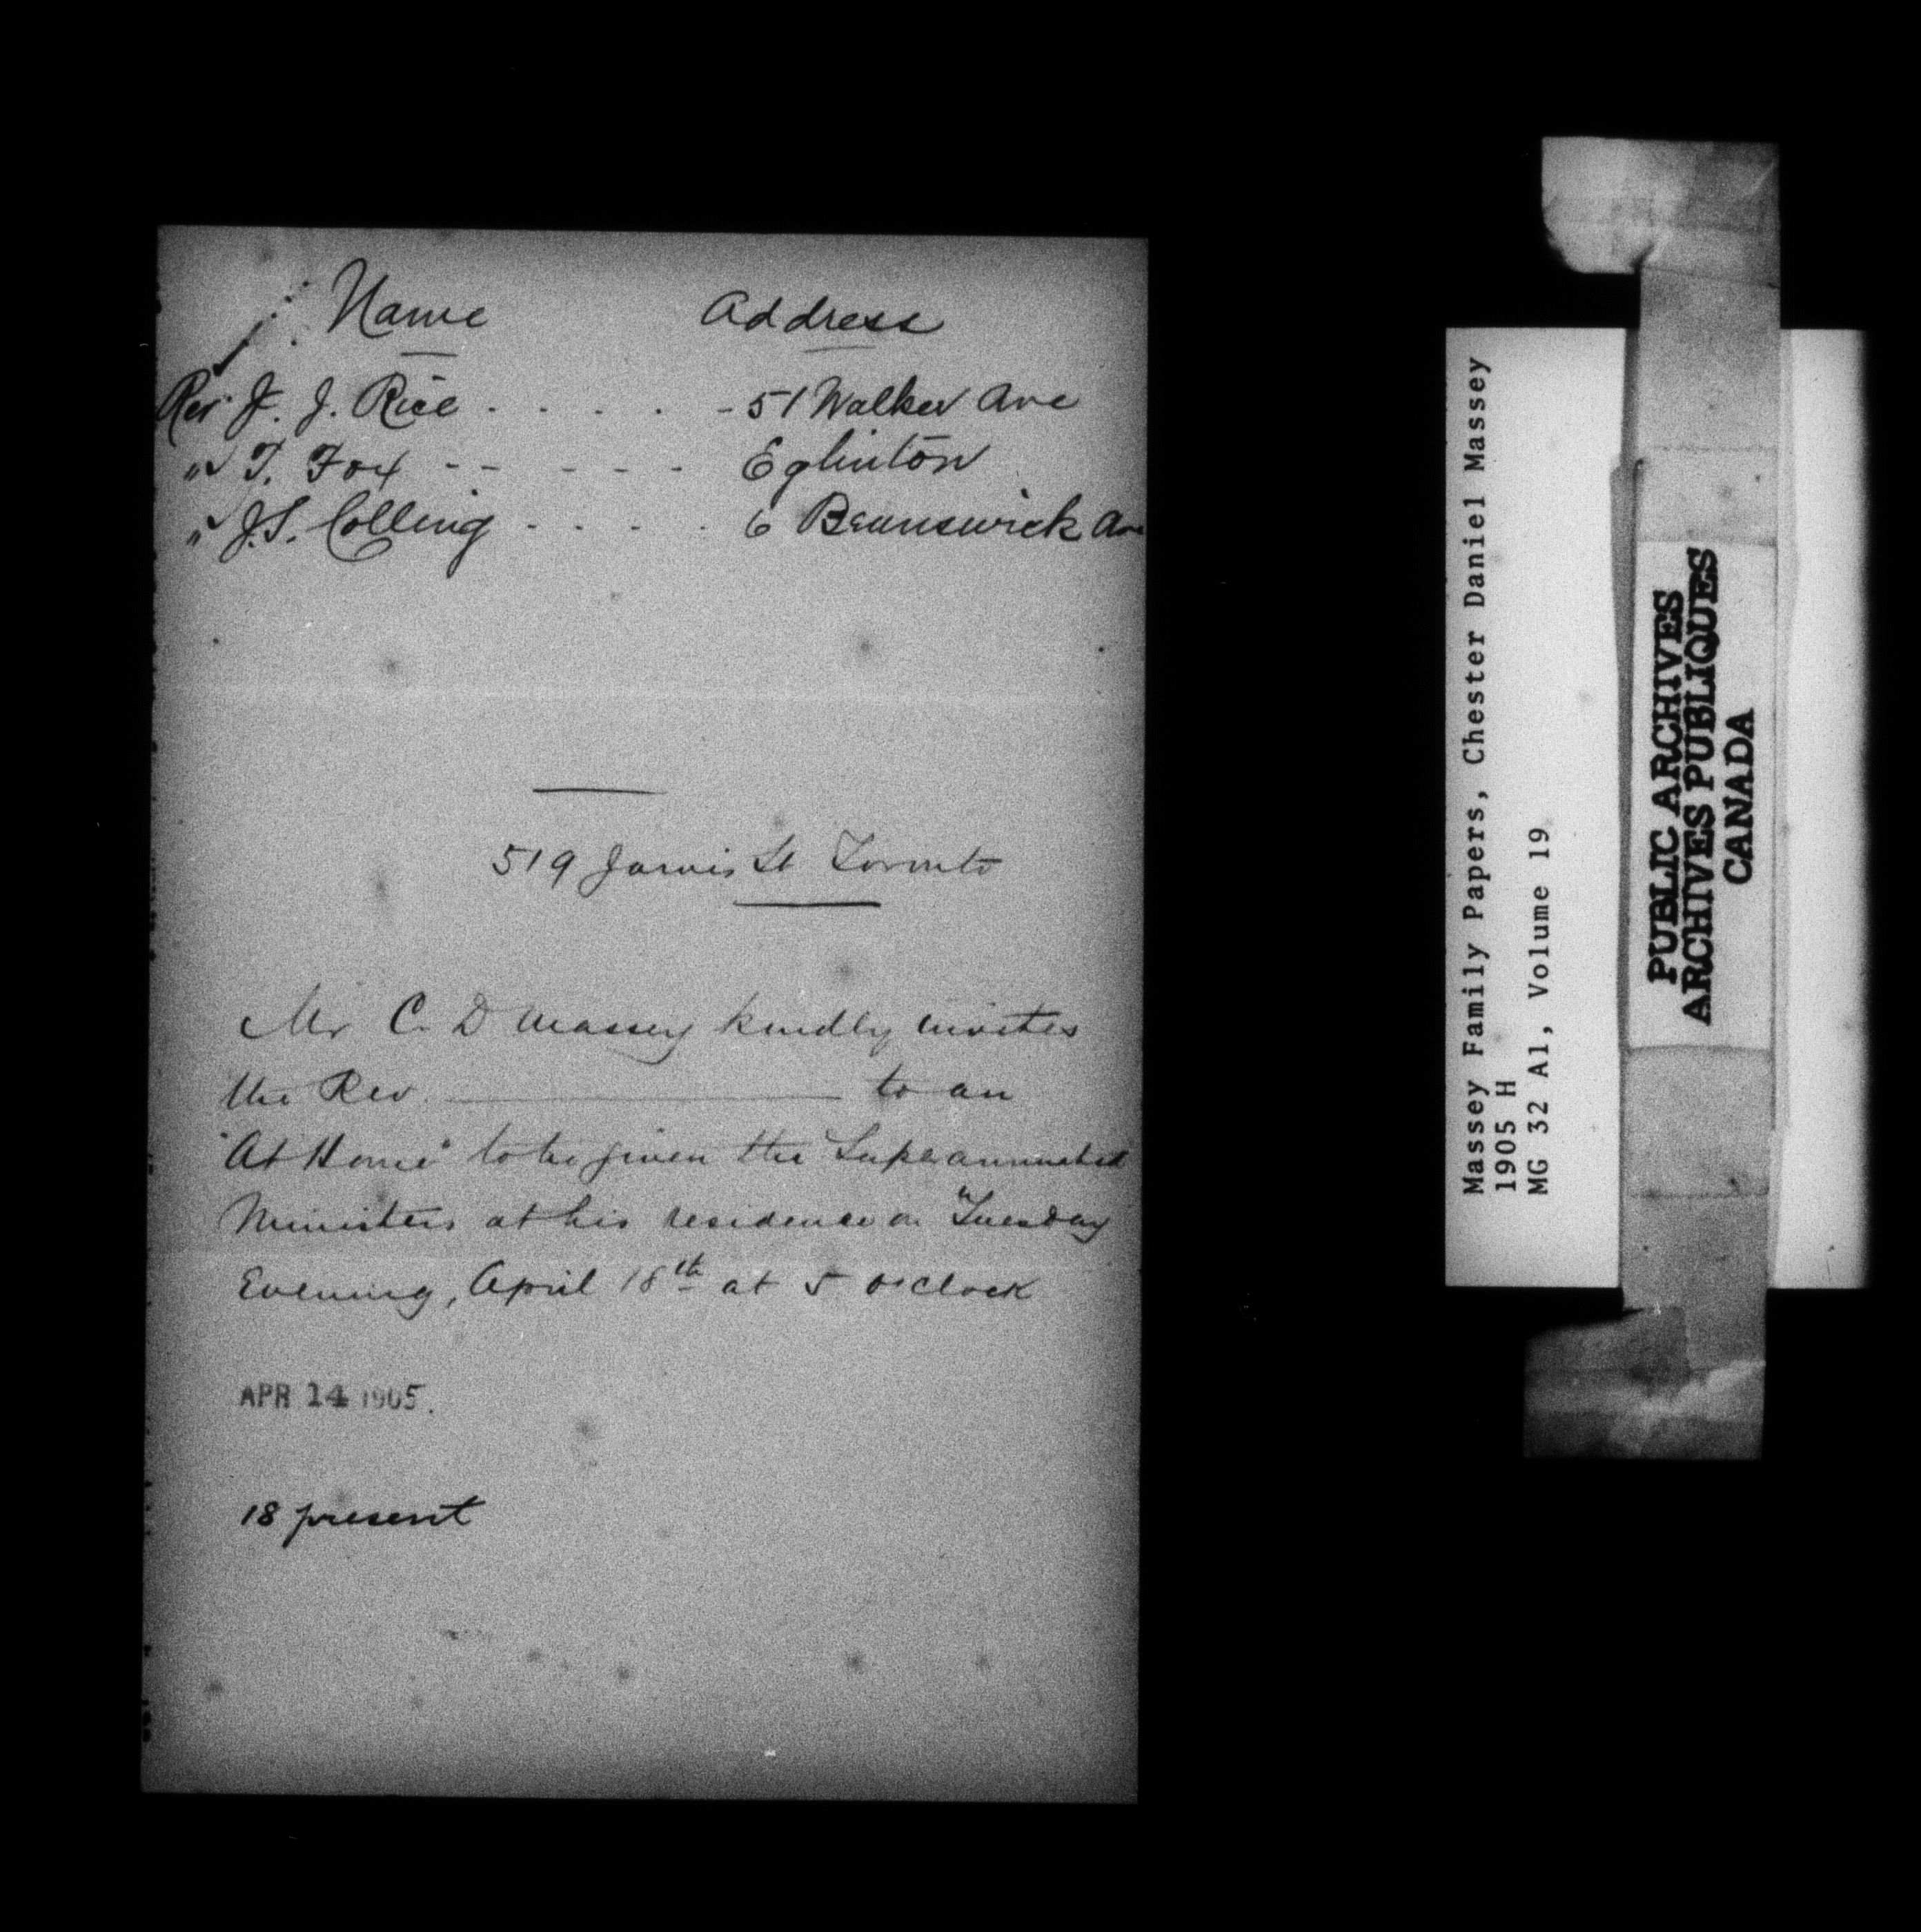 Name Address
Rev J. J. Rice . . . . . - 51 Walker Ave
" T. Fox - - - - - Eglinton
" J.S. Colling . . . . 6 Brunswick Av
519 Jarvis St Toronto
Mr C. D Massey kindly invites
the Rev. to an
"At Home" to be given the Superannuated
Ministers at his residence on "Tuesday
Evening, April 18th at 5 o'clock
APR 14 1905.
18 present
Massey Family Papers, Chester Daniel Massey
1905 H
MG 32 A1, Volume 19
PUBLIC ARCHIVES
ARCHIVES PUBLIQUES
CANADA